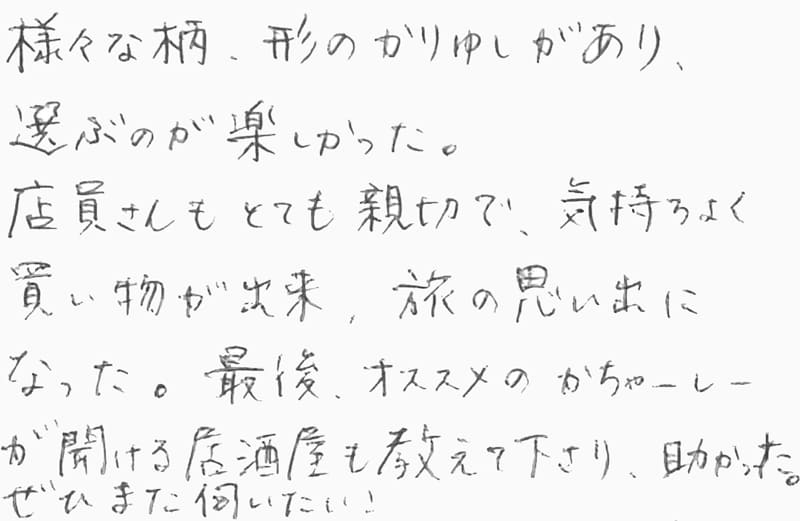 様々な柄、形のかりゆしがあり、
選ぶのが楽しかった。
店員さんもとても親切で、気持ちよく
買い物が出来、旅の思い出に
なった。最後、オススメのかちゃーしー
が聞ける居酒屋も教えて下さり、助かった。
ぜひまた伺いたい!